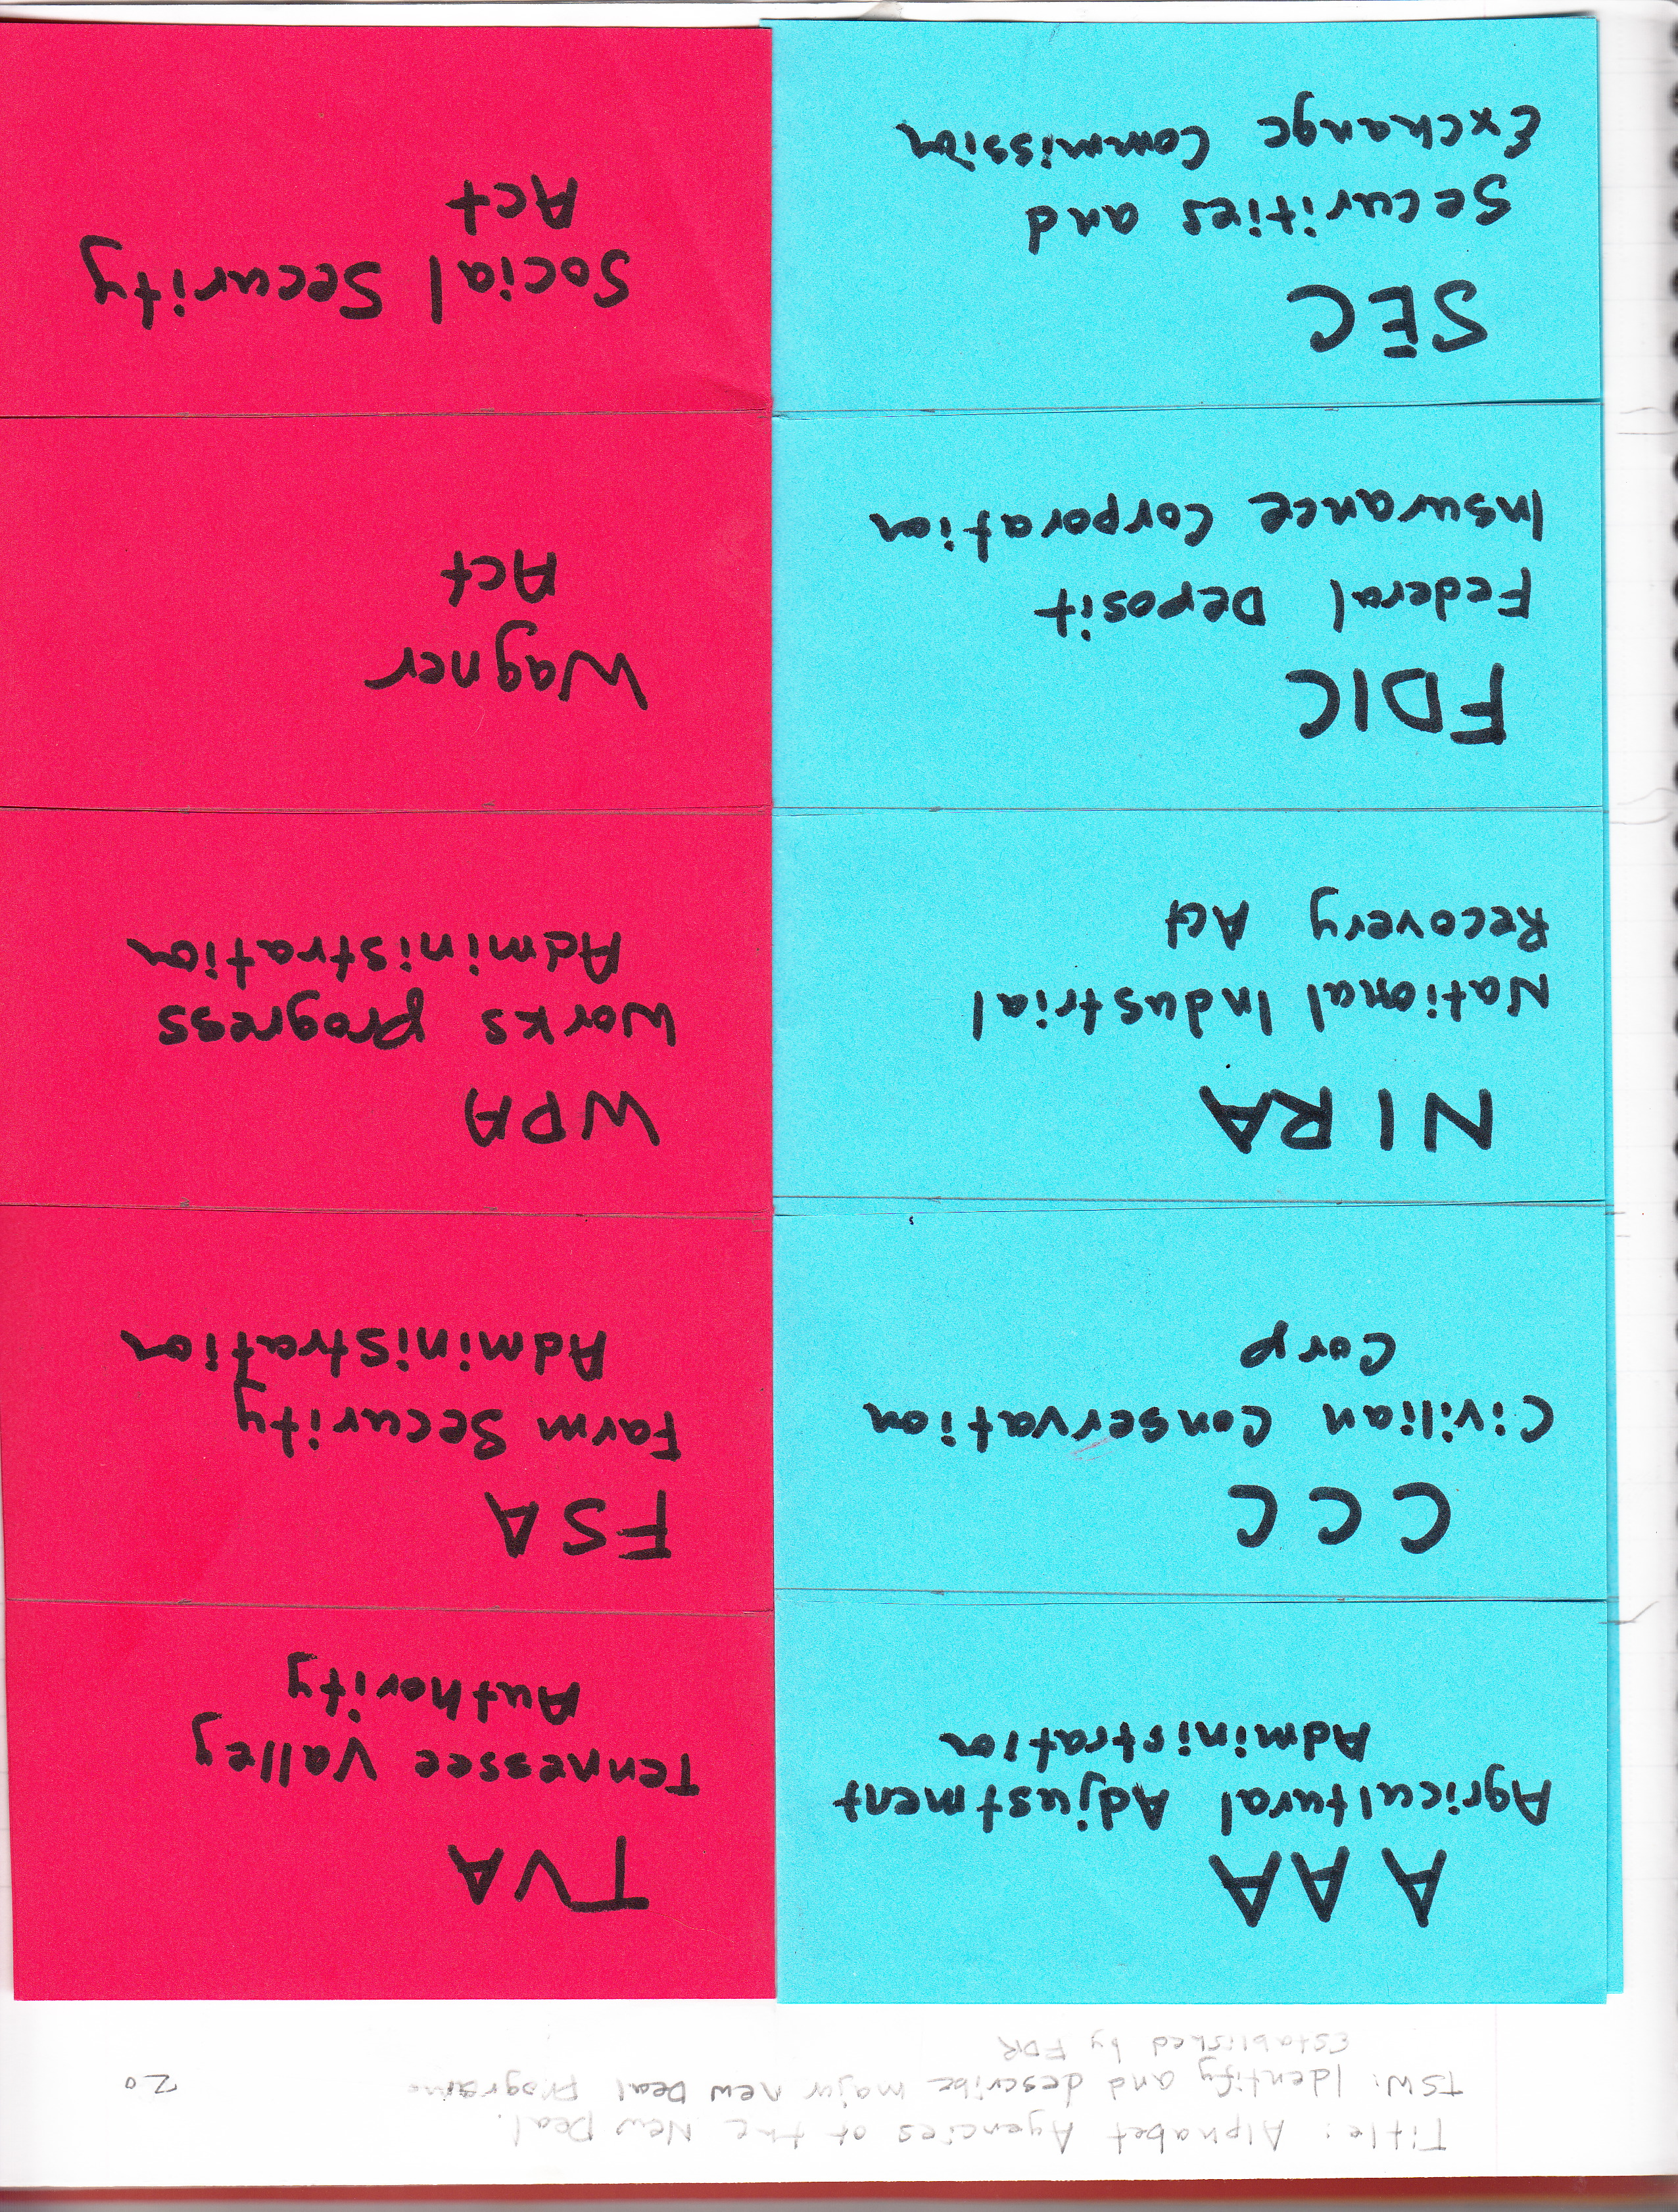 Title: Alphabet Agencies of the New Deal.
TSW: Identify and describe major new Deal programs
Established by FDR
20
AAA
Agricultural Adjustment
Administration
CCC
Civilian Conservation
Corp
NIRA
National Industrial
Recovery Act
FDIC
Federal Deposit
Insurance Corporation
SEC
Securities and
Exchange Commission
TVA
Tennessee Valley
Authority
FSA
Farm Security
Administration
WPA
Works Progress
Administration
Wagner
Act
Social Security
Act